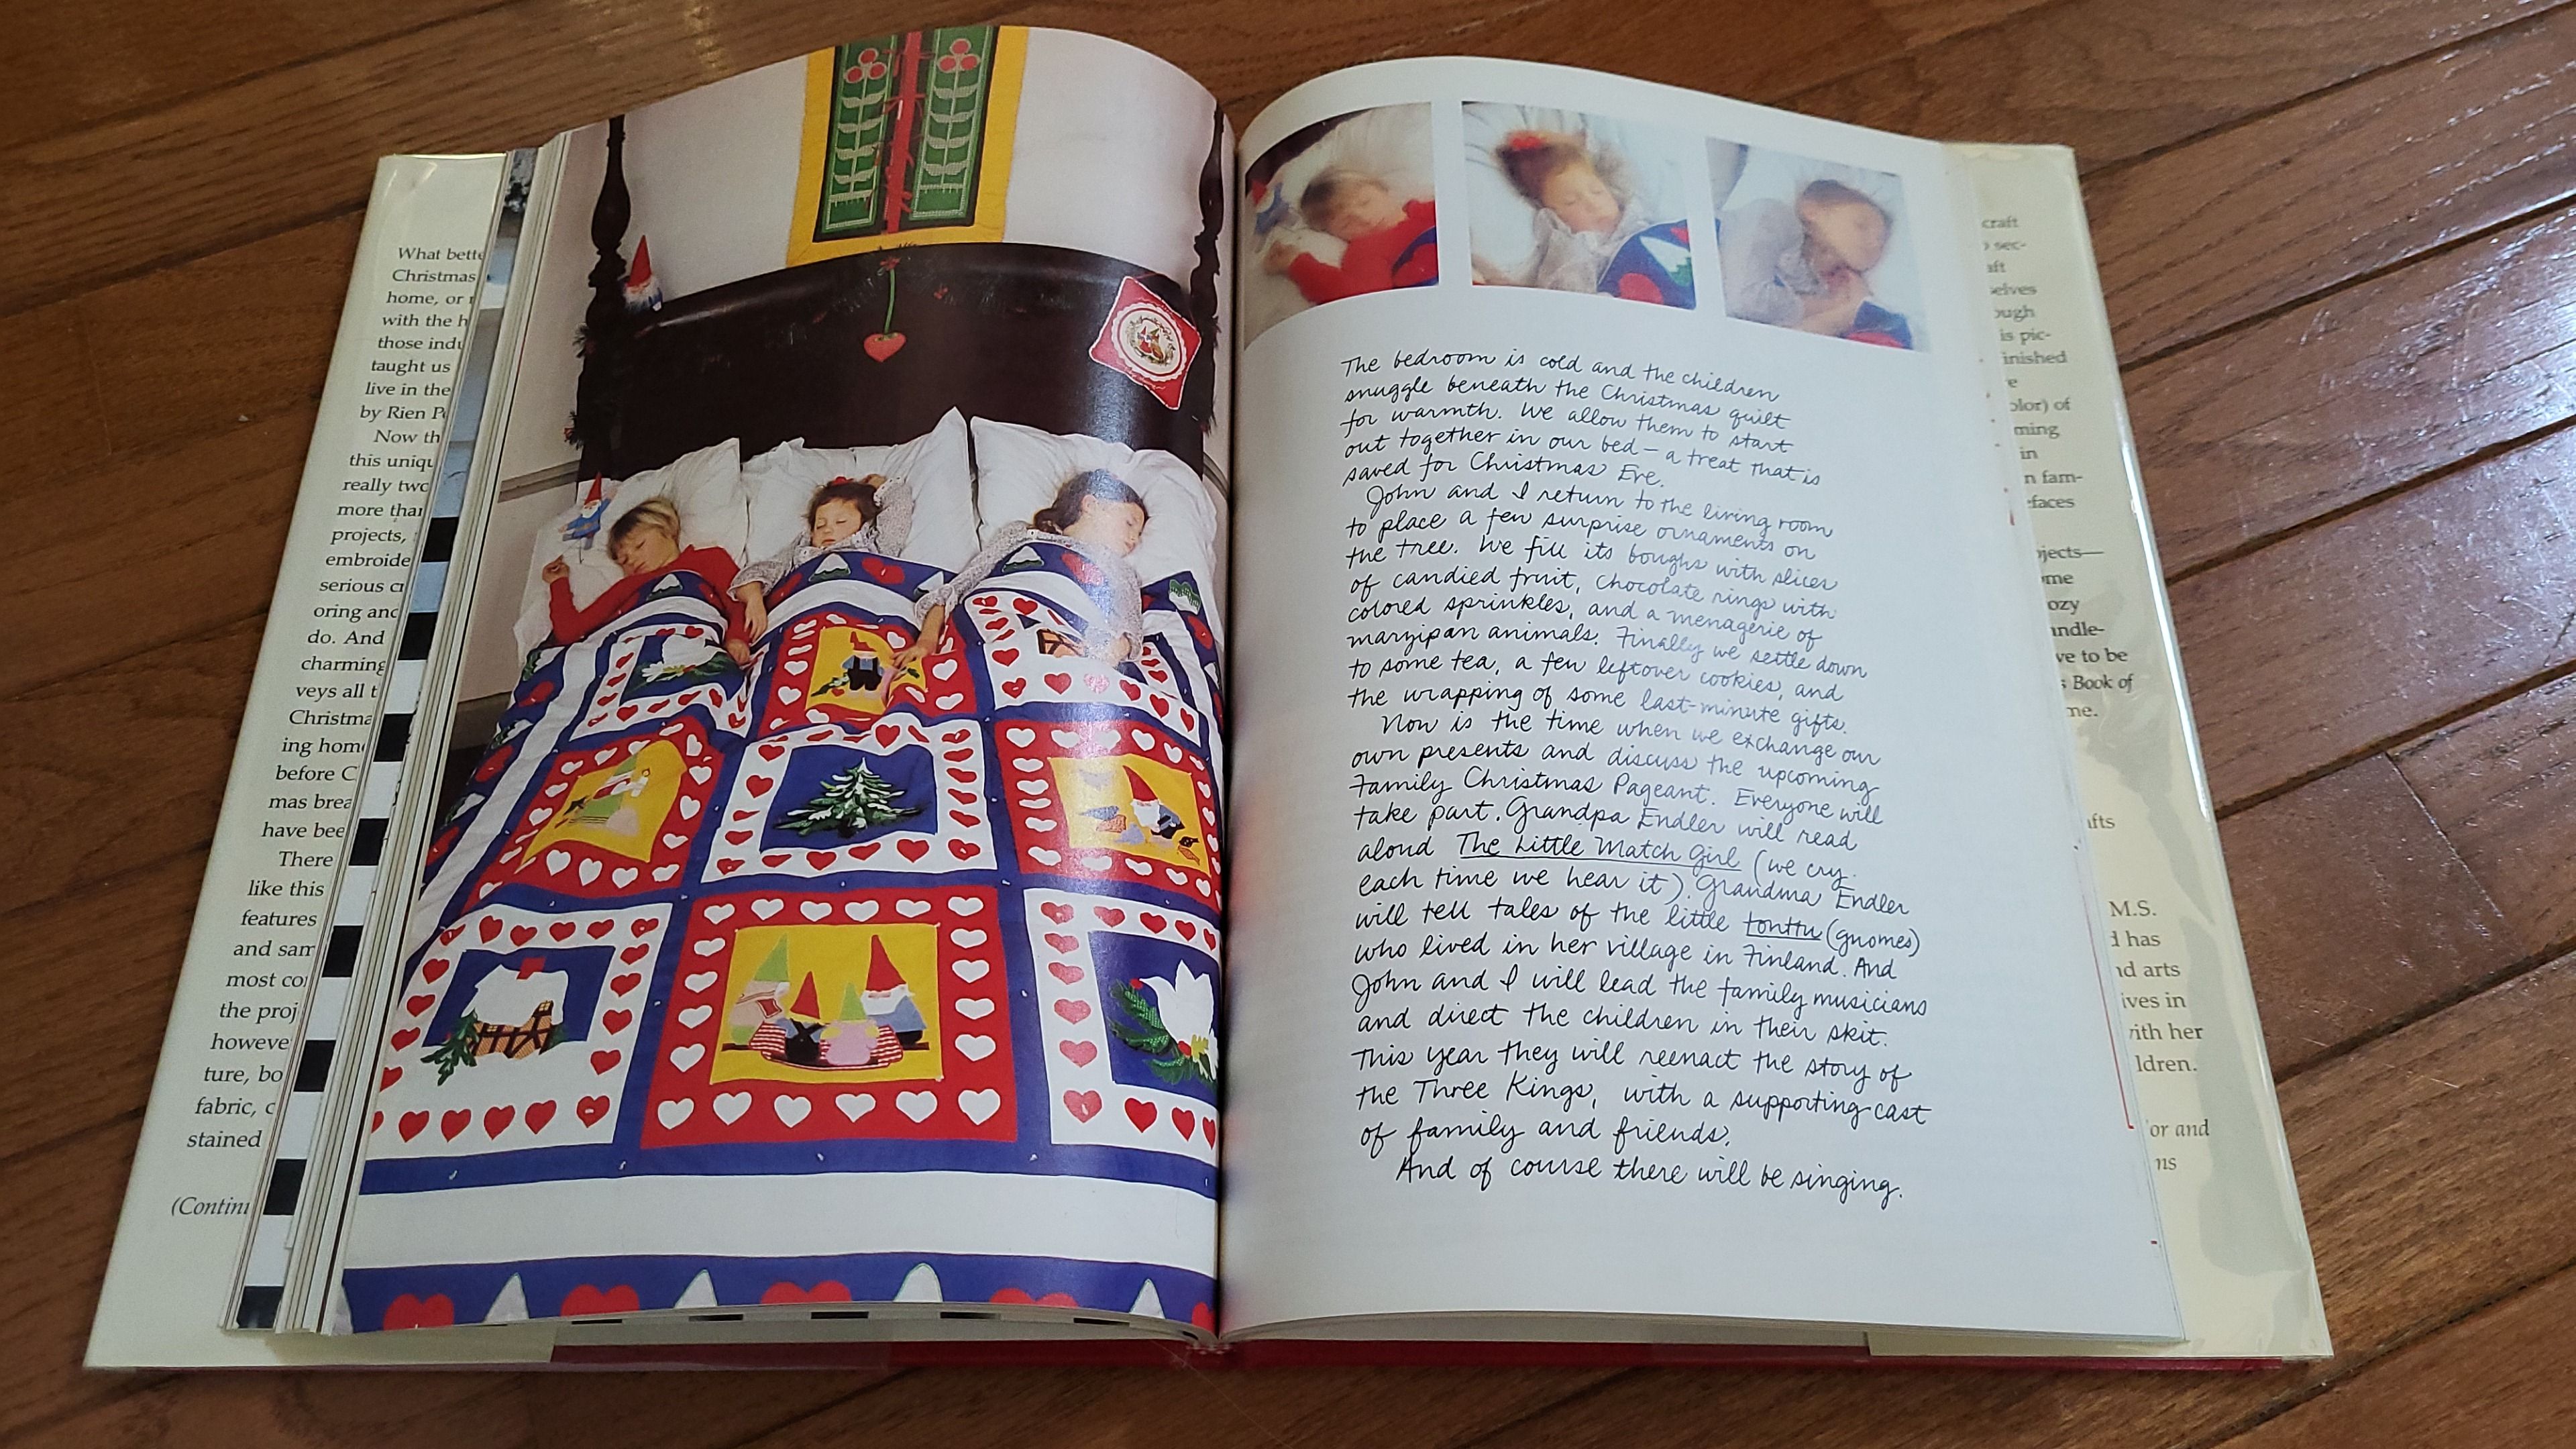 What bett
Christmas
home, or
with the h
those indu
taught us
live in the
by Rien P
Now th
this uniqu
really two
more than
projects,
embroide
serious cr
oring and
do. And
charming
veys all t
Christma
ing home
before C
mas brea
have bee
There
like this
features
and sam
most co
the proj
howeve
ture, bo
fabric, c
stained
(Contin
The bedroom is cold and the children
snuggle beneath the Christmas quilt
for warmth. We allow them to start
out together in our bed — a treat that is
saved for Christmas Eve.
John and I return to the living room
to place a few surprise ornaments on
the tree. We fill its boughs with slices
of candied fruit, chocolate rings with
colored sprinkles, and a menagerie of
marzipan animals. Finally we settle down
to some tea, a few leftover cookies, and
the wrapping of some last-minute gifts.
Now is the time when we exchange our
own presents and discuss the upcoming
Family Christmas Pageant. Everyone will
take part. Grandpa Endler will read
aloud The Little Match Girl (we cry
each time we hear it). Grandma Endler
will tell tales of the little tonttu (gnomes)
who lived in her village in Finland. And
John and I will lead the family musicians
and direct the children in their skit.
This year they will reenact the story of
the Three Kings, with a supporting cast
of family and friends.
And of course there will be singing.
craft
sec-
aft
selves
ough
is pic-
inished
re
olor) of
ming
in
n fam-
efaces
ojects—
ome
ozy
andle-
ve to be
s Book of
me.
afts
M.S.
d has
nd arts
ives in
with her
ldren.
or and
ns